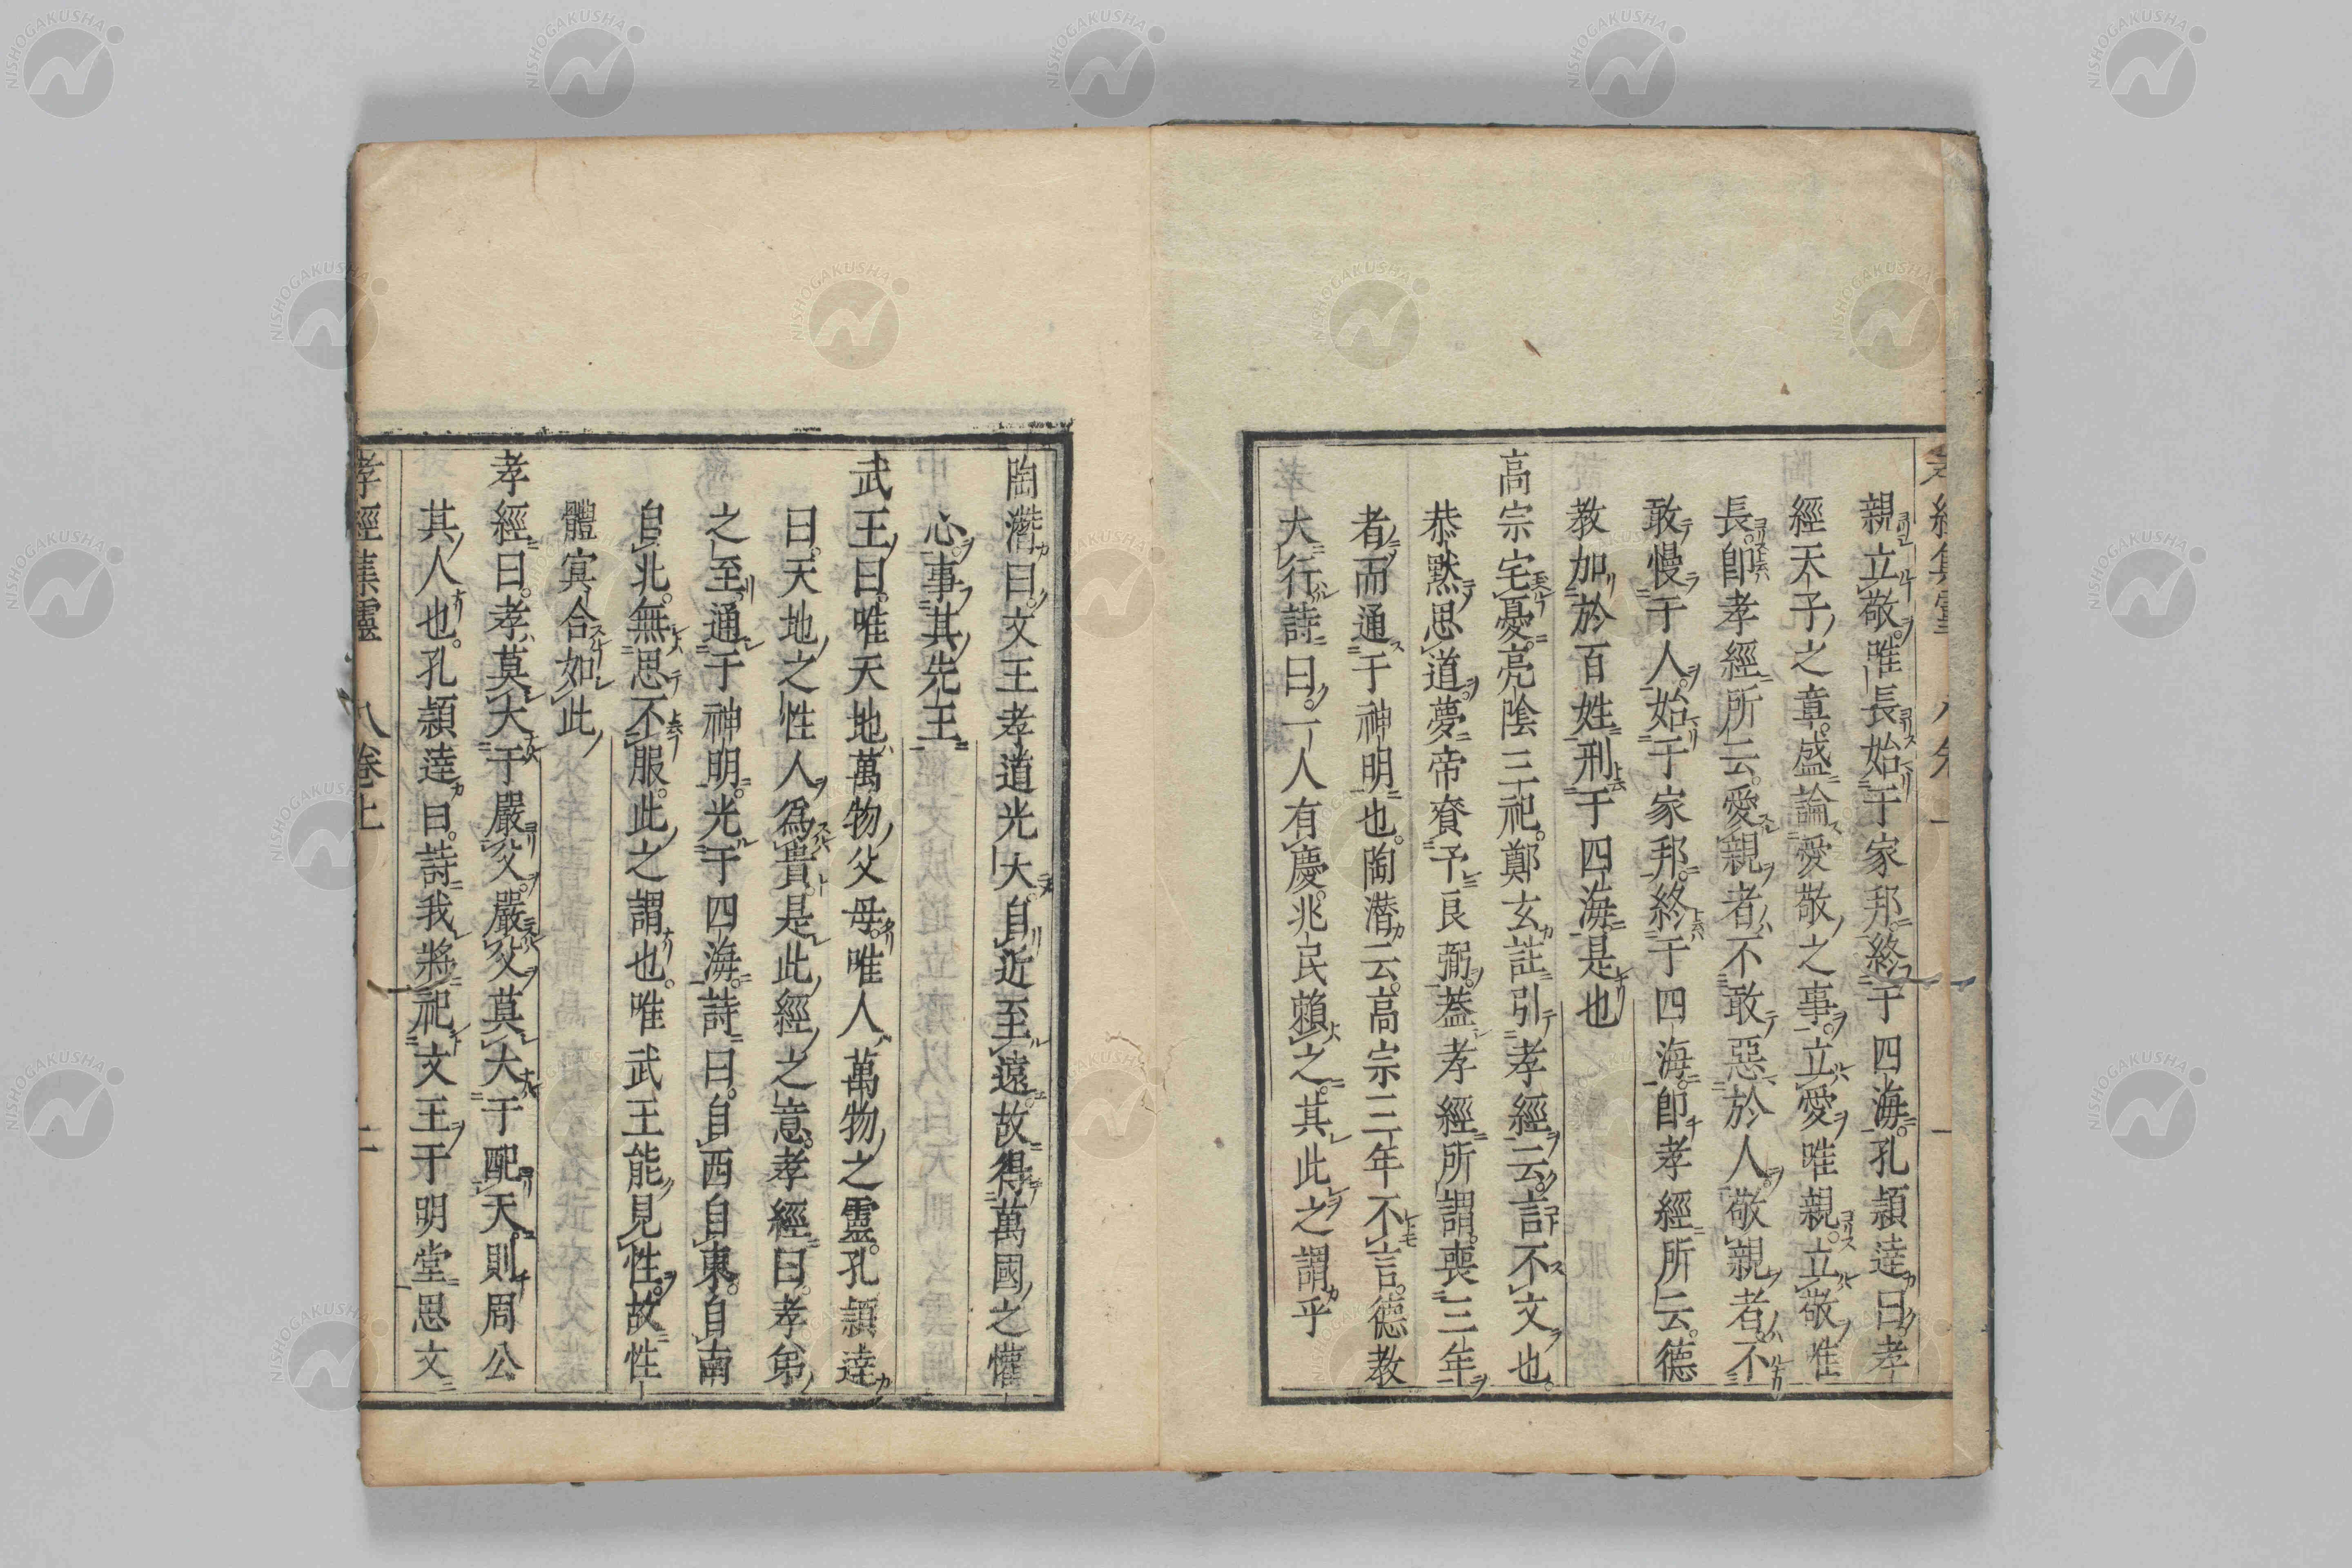 親立敬唯長始于家邦終于四海孔頴逹曰孝
經天子之章盛論愛敬之事立愛唯親立敬唯
長卽孝經所云愛親者不敢惡於人敬親者不
敢慢于人始于家邦終于四海卽孝經所云德
教加於百姓刑于四海是也
高宗宅憂亮陰三祀鄭玄註引孝經云言不文也
恭默思道夢帝賚予良弼蓋孝經所謂喪三年
者而通于神明也陶潛云高宗三年不言德教
大行詩曰一人有慶兆民賴之其此之謂乎
陶潛曰文王孝道光大自近至遠故得萬國之懽
心事其先王
武王曰唯天地萬物父母唯人萬物之靈孔頴逹
曰天地之性人爲貴是此經之意孝經曰孝弟
之至通于神明光于四海詩曰自西自東自南
自北無思不服此之謂也唯武王能見性故性
體寞合如此
孝經曰孝莫大于嚴父嚴父莫大于配天則周公
其人也孔頴逹曰詩我將祀文王于明堂思文
孝經集靈 卷上 二
NISHOGAKUSHA